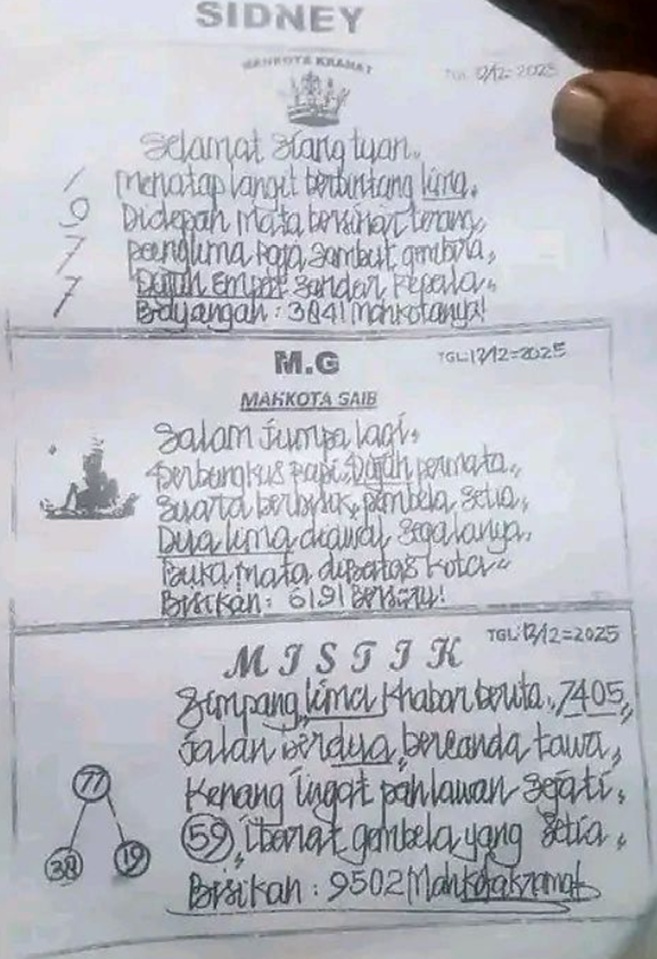 SIDNEY
MAHKOTA KRAMAT
TGL: 12/12=2025
Selamat Siang tuan.
1 Menatap langit berbintang lima.
9 Didepan Mata bersinar terang,
7 panglima Raja Sambut gembira,
7 Dujuh Empat Sandar Kepala.
Bayangan: 3841 Mahkotanya!
M.G
TGL: 12/12=2025
MAHKOTA GAIB
Salam Jumpa lagi.
Terbungkus Rapi, Dujuh permata.
Suara berbisik, pembela Setia,
Dua lima diawal Segalanya.
Buka Mata dibatas Kota
Bisikan: 6191 Bersatu!
MISTIK
TGL: 12/12=2025
Simpang lima Khabar berita, 7405,
Jalan berdua, bercanda tawa,
Kenang Ingat pahlawan Sejati.
77
59 Ibarat gembela yang Setia.
38 19
Bisikan: 9502 Mahkotakramat